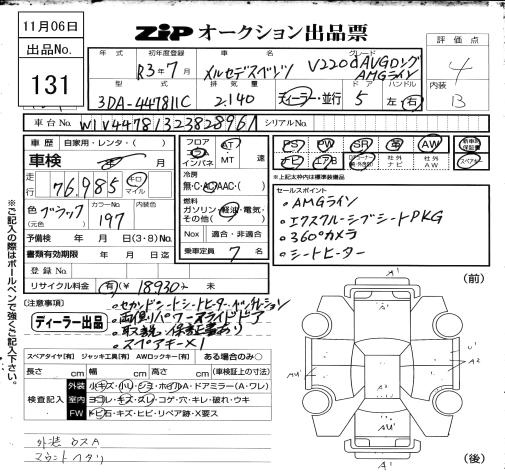 11月06日
出品No.
131
ZIP オークション出品票
年式 初年度登録 車名 グレード
R3年7月 メルセデスベンツ V220d AVGロング
AMGライン
評価点
4
内装
B
型式 排気量 ドア ハンドル
3DA-447811C 2.140 ディーラー・並行 5 左・右
車台No. W1V44781323828961 シリアルNo.
車歴 自家用・レンタ・( )
車検 年 月
走行 76,985 キロ マイル
色 (元色) ブラック カラーNo. 197 内装色
予備検 年 月 日(3・8)No.
書類有効期限 年 月 日迄
登録No.
リサイクル料金 有(¥ 18930 ) 未
フロア インパネ AT MT 速
冷房 無・C・AC(AAC)・( )
燃料 ガソリン・軽油・電気・その他( )
Nox 適合・非適合
乗車定員 7 名
PS PW SR 革 AW 新車時保証書
ナビ エアB 社外ナビ 社外AW スペアキー
※上記太枠内は標準装備品
セールスポイント
・AMGライン
・エクスクルーシブシートPKG
・360°カメラ
・シートヒーター
(注意事項)
ディーラー出品
・両側パワースライドドア
・取説・保証書あり
・スペアキー×1
スペアタイヤ[有] ジャッキ工具[有] AWロックキー[有] ある場合のみ○
長さ cm 幅 cm 高さ cm (車検証上の寸法)
検査記入
外装 小キズ・小ヘコミ・ホイルA・ドアミラー(A・ワレ)
室内 ヨゴレ・キズ・スレ・コゲ・穴・キレ・破れ・ウキ
FW トビ石・キズ・ヒビ・リペア跡・X要ス
外装 ウスA
マウントヘタリ
※ご記入の際はボールペンで強くご記入下さい。
(前)
A'
U'
A2
AU'
AU'
A'
(後)